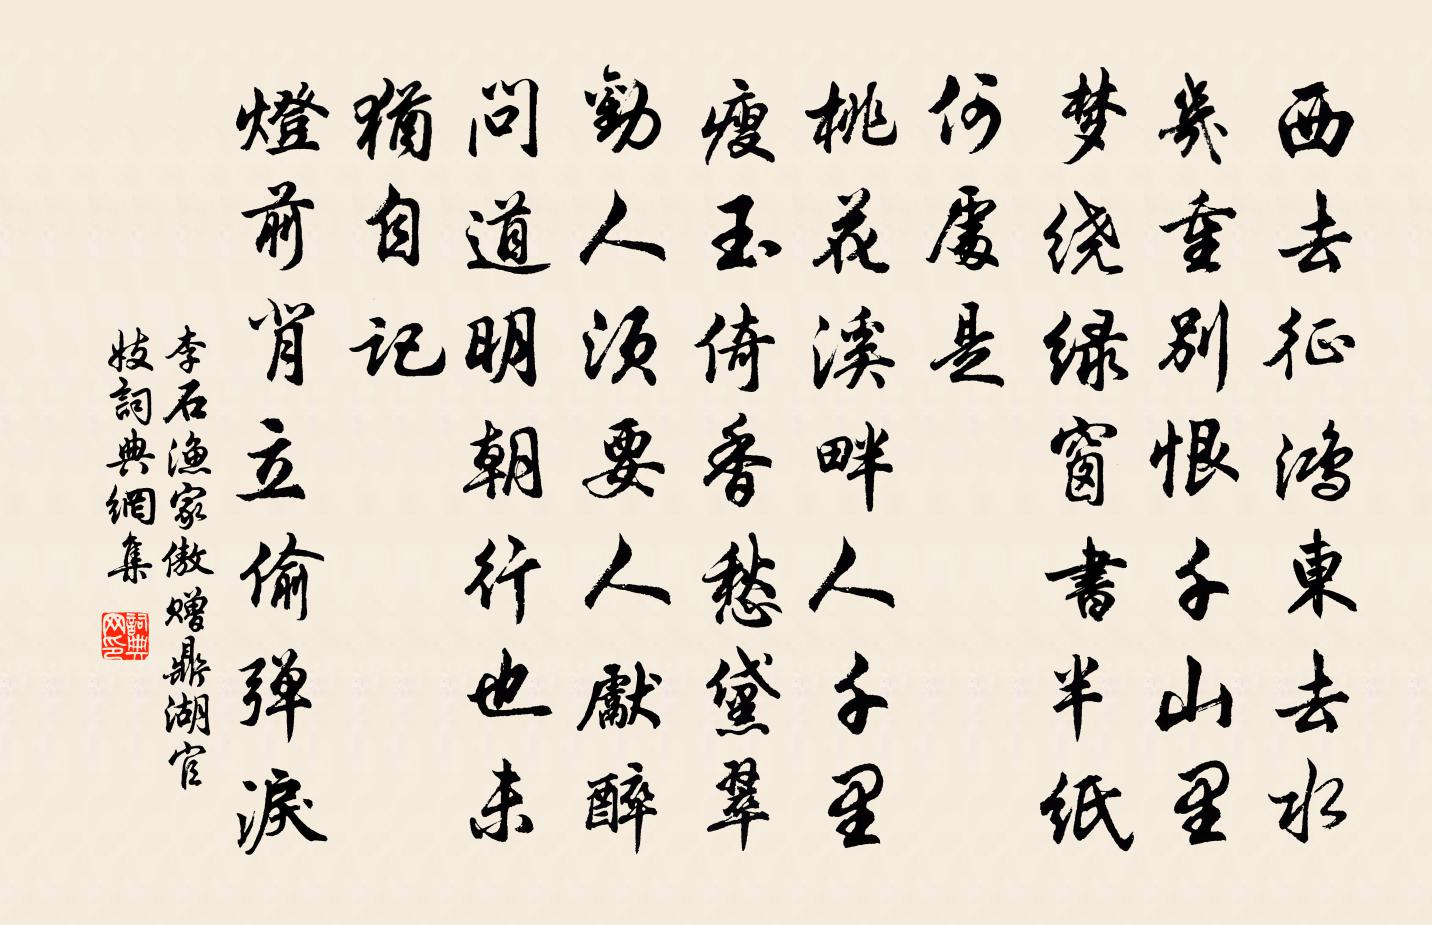 西去征鸿東去水
幾重别恨千山里
梦绕绿窗書半紙
何處是
桃花溪畔人千里
瘦玉倚香愁黛翠
勸人须要人獻醉
問道明朝行也未
猶自記
燈前背立偷弹淚
李石漁家傲赠鼎湖官
妓詞典網集
詞典网印